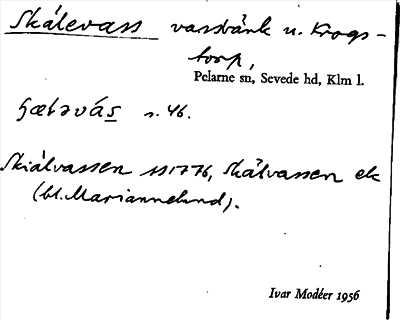 Skälevass vassbänk u. Krogs-
torp,
Pelarne sn, Sevede hd, Klm l.
s. 46.
Skiälvassen 1776, Skälvassen ek
(bl. Mariannelund).
Ivar Modéer 1956